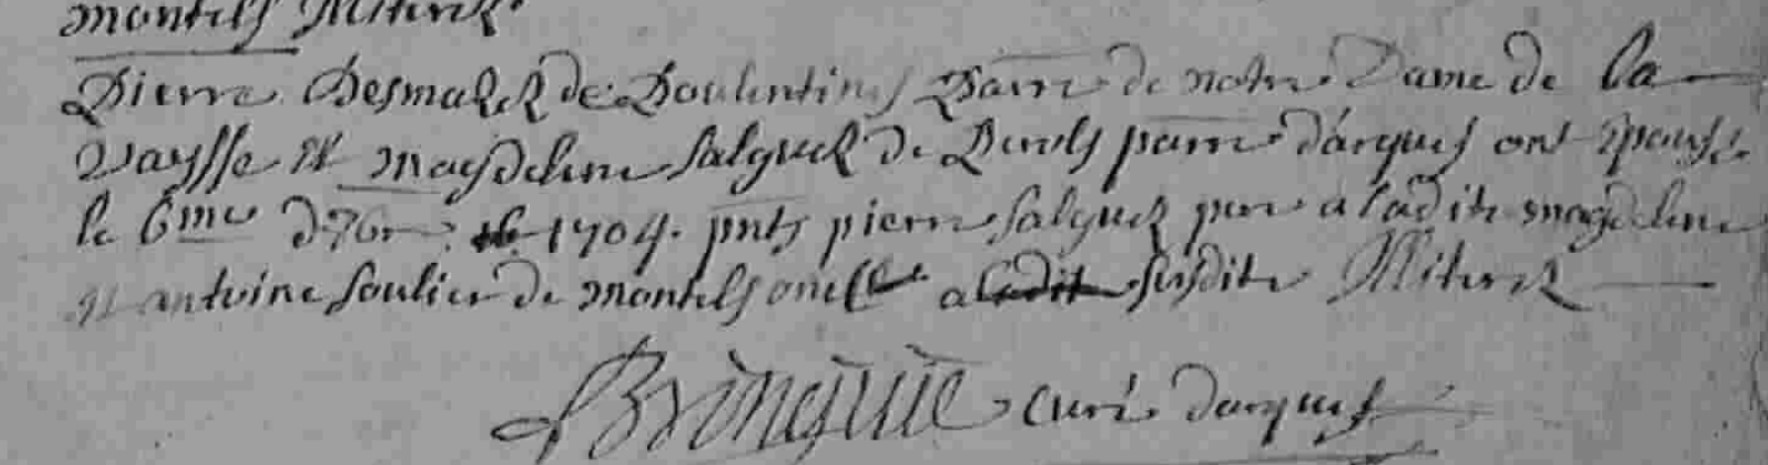 montels illiterez.
Pierre Desmazes de Doulentines parre de notre Dame de la
Vaysse et Magdelene Salguez de Devols parre d'arques ont Epousé
le 6me d'7bre 1704. pnts pierre Salguez pere a ladite magdelene
et antoine Soulier de montels oncle a susdite illiterez
Bringuié curé darques